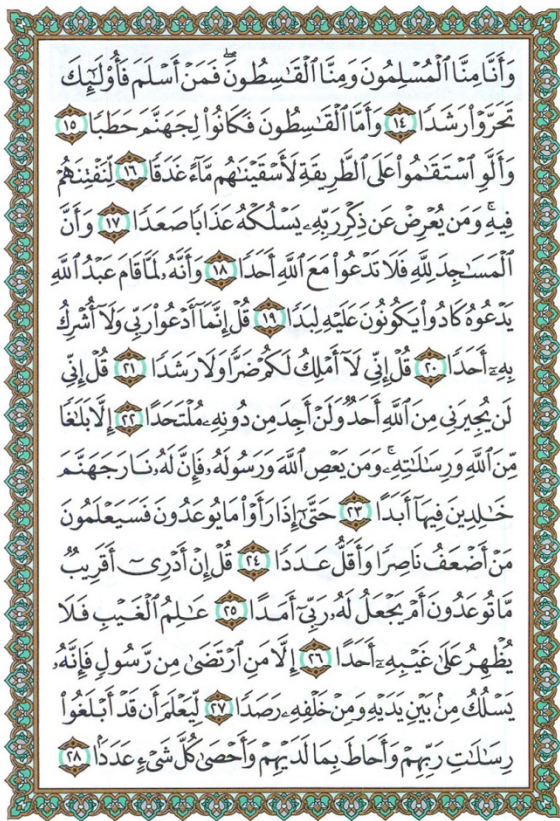 وَأَنَّا مِنَّا ٱلْمُسْلِمُونَ وَمِنَّا ٱلْقَٰسِطُونَۖ فَمَنْ أَسْلَمَ فَأُو۟لَٰٓئِكَ
تَحَرَّوْا۟ رَشَدًا ١٤ وَأَمَّا ٱلْقَٰسِطُونَ فَكَانُوا۟ لِجَهَنَّمَ حَطَبًا ١٥
وَأَلَّوِ ٱسْتَقَٰمُوا۟ عَلَى ٱلطَّرِيقَةِ لَأَسْقَيْنَٰهُم مَّآءً غَدَقًا ١٦ لِّنَفْتِنَهُمْ
فِيهِۚ وَمَن يُعْرِضْ عَن ذِكْرِ رَبِّهِۦ يَسْلُكْهُ عَذَابًا صَعَدًا ١٧ وَأَنَّ
ٱلْمَسَٰجِدَ لِلَّهِ فَلَا تَدْعُوا۟ مَعَ ٱللَّهِ أَحَدًا ١٨ وَأَنَّهُۥ لَمَّا قَامَ عَبْدُ ٱللَّهِ
يَدْعُوهُ كَادُوا۟ يَكُونُونَ عَلَيْهِ لِبَدًا ١٩ قُلْ إِنَّمَآ أَدْعُوا۟ رَبِّى وَلَآ أُشْرِكُ
بِهِۦٓ أَحَدًا ٢٠ قُلْ إِنِّى لَآ أَمْلِكُ لَكُمْ ضَرًّا وَلَا رَشَدًا ٢١ قُلْ إِنِّى
لَن يُجِيرَنِى مِنَ ٱللَّهِ أَحَدٌ وَلَنْ أَجِدَ مِن دُونِهِۦ مُلْتَحَدًا ٢٢ إِلَّا بَلَٰغًا
مِّنَ ٱللَّهِ وَرِسَٰلَٰتِهِۦۚ وَمَن يَعْصِ ٱللَّهَ وَرَسُولَهُۥ فَإِنَّ لَهُۥ نَارَ جَهَنَّمَ
خَٰلِدِينَ فِيهَآ أَبَدًا ٢٣ حَتَّىٰٓ إِذَا رَأَوْا۟ مَا يُوعَدُونَ فَسَيَعْلَمُونَ
مَنْ أَضْعَفُ نَاصِرًا وَأَقَلُّ عَدَدًا ٢٤ قُلْ إِنْ أَدْرِىٓ أَقَرِيبٌ
مَّا تُوعَدُونَ أَمْ يَجْعَلُ لَهُۥ رَبِّىٓ أَمَدًا ٢٥ عَٰلِمُ ٱلْغَيْبِ فَلَا
يُظْهِرُ عَلَىٰ غَيْبِهِۦٓ أَحَدًا ٢٦ إِلَّا مَنِ ٱرْتَضَىٰ مِن رَّسُولٍ فَإِنَّهُۥ
يَسْلُكُ مِنۢ بَيْنِ يَدَيْهِ وَمِنْ خَلْفِهِۦ رَصَدًا ٢٧ لِّيَعْلَمَ أَن قَدْ أَبْلَغُوا۟
رِسَٰلَٰتِ رَبِّهِمْ وَأَحَاطَ بِمَا لَدَيْهِمْ وَأَحْصَىٰ كُلَّ شَىْءٍ عَدَدًۢا ٢٨